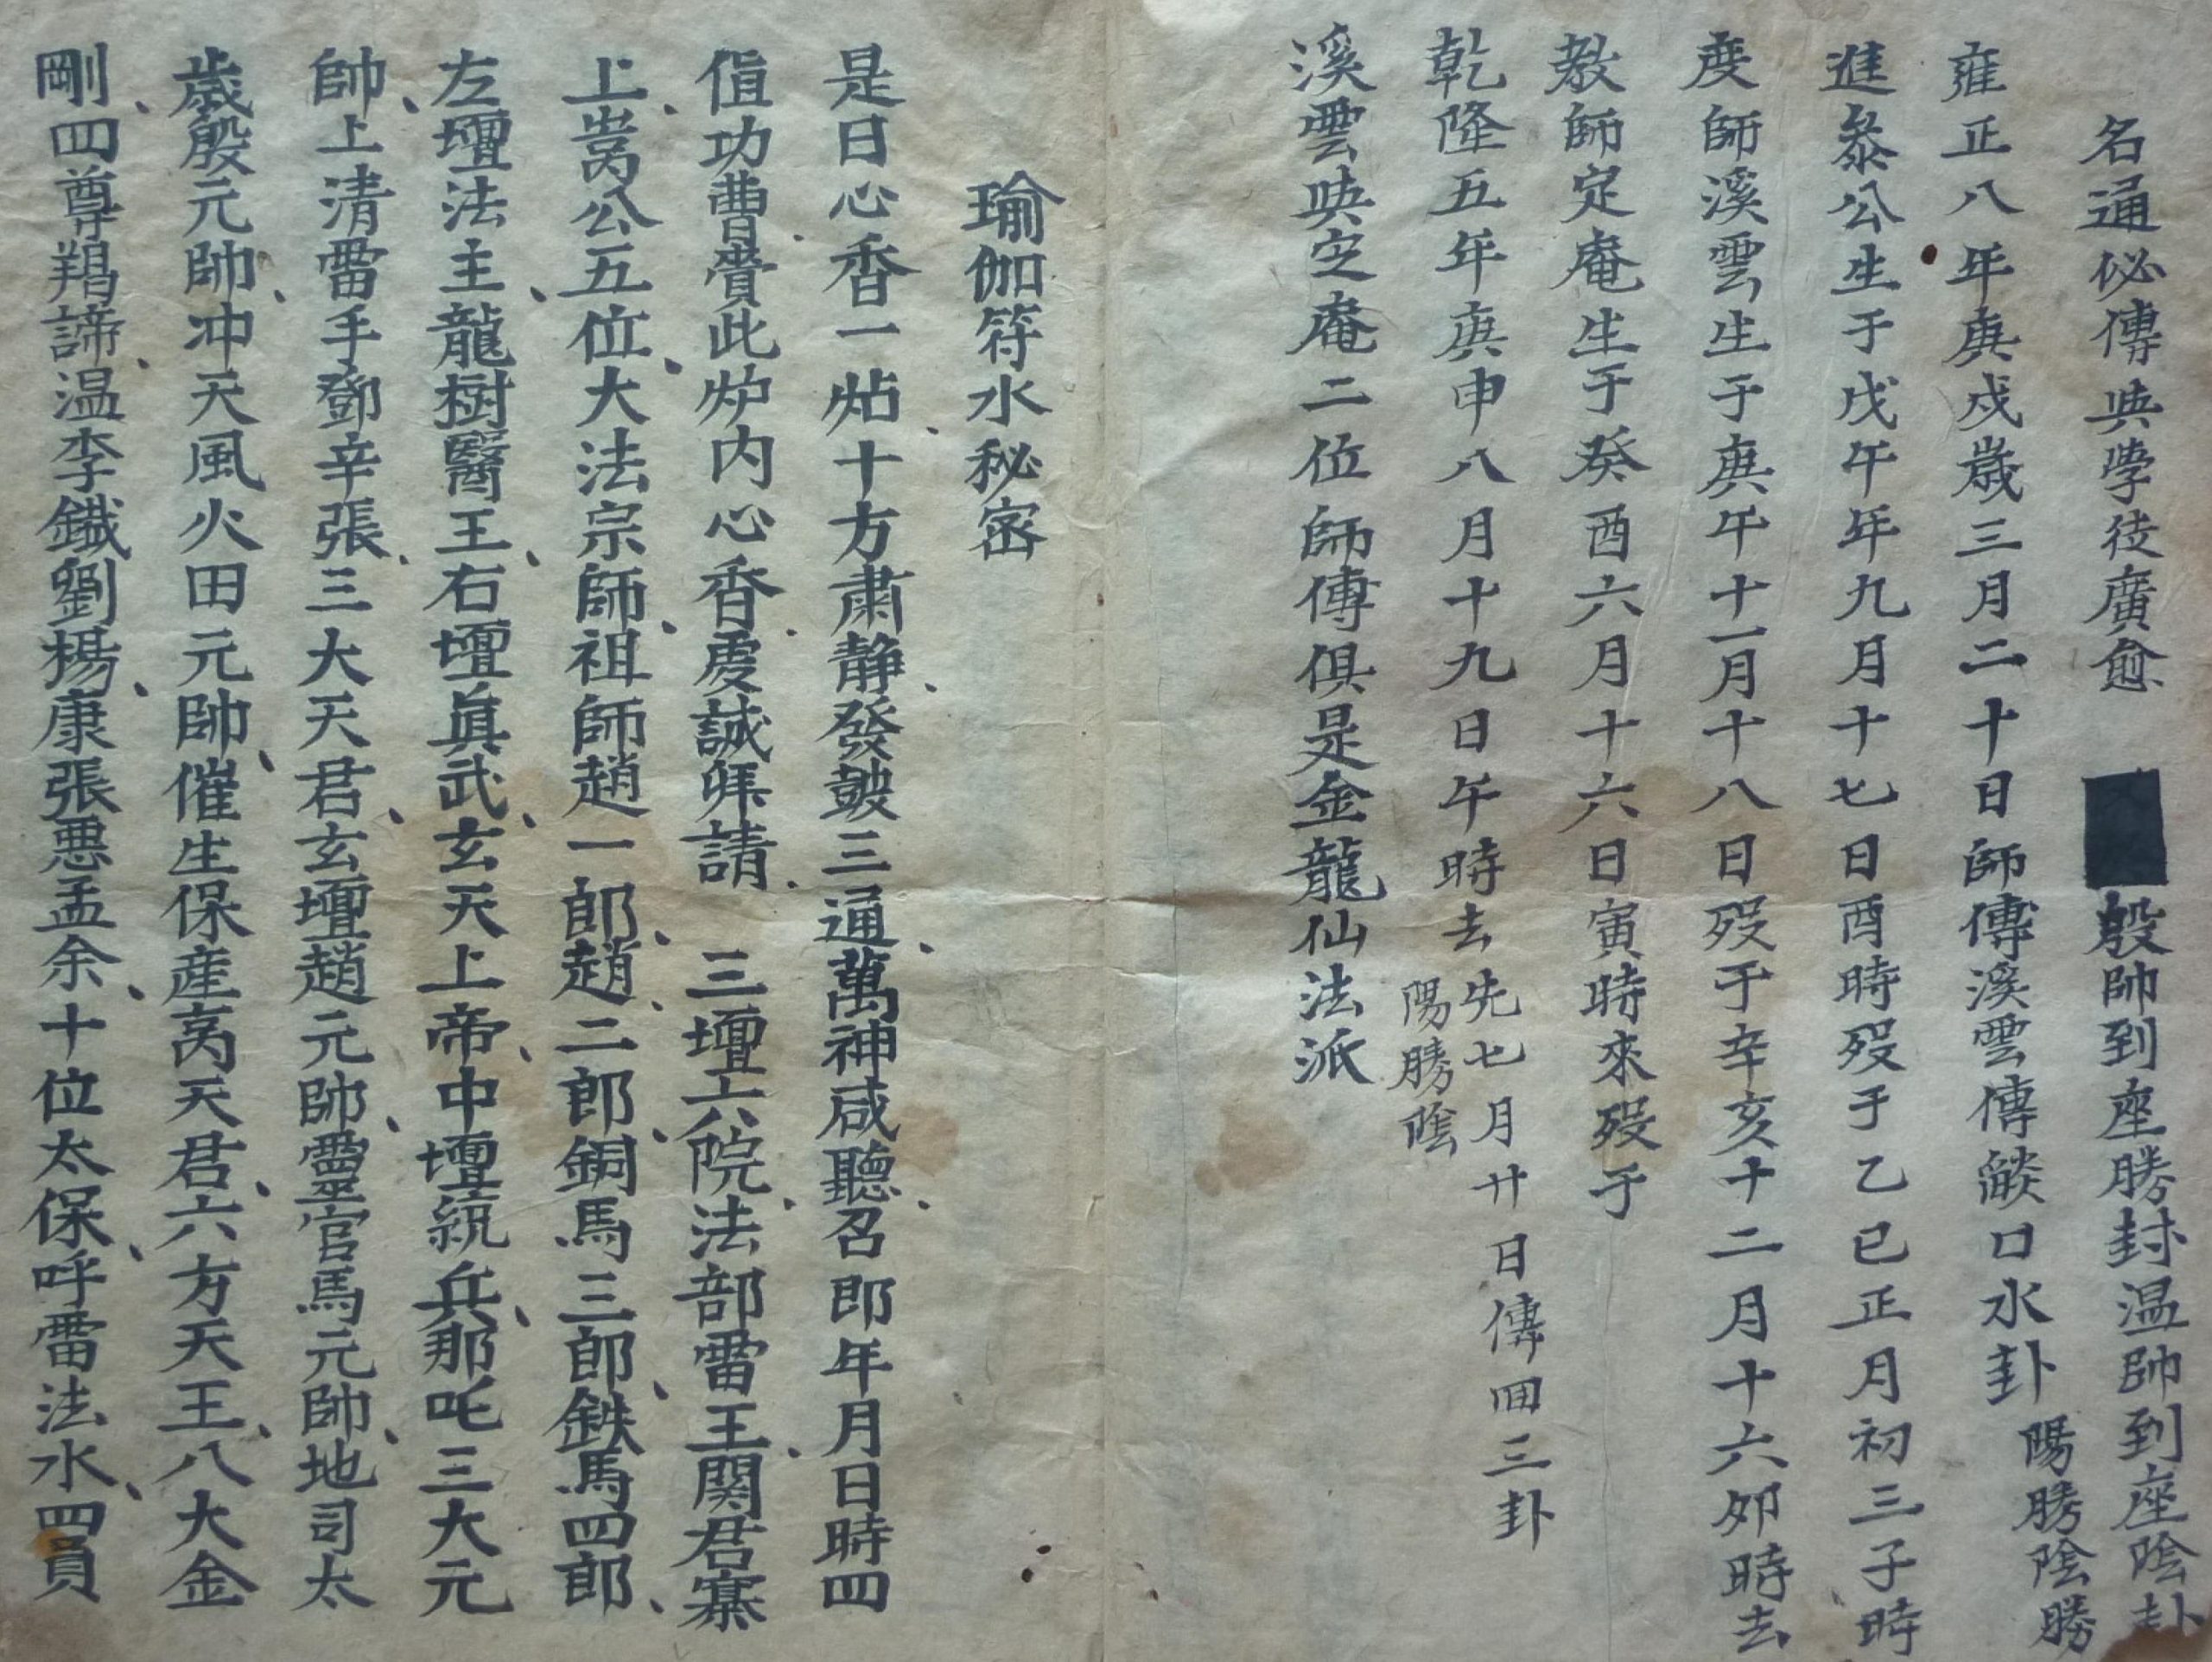 名通必傳與學徒廣愈 殷帥到座勝封温帥到座陰卦
雍正八年庚戍歲三月二十日師傳溪雲傳燄口水卦陽勝陰勝
進叅公生于戊午年九月十七日酉時殁于乙巳正月初三子時
度師溪雲生于庚午十一月十八日殁于辛亥十二月十六夘時去
教師定庵生于癸酉六月十六日寅時來殁于
乾隆五年庚申八月十九日午時去先七月廿日傳回三卦陽勝陰
溪雲與定庵二位師傳俱是金龍仙法派
瑜伽符水秘密
是日心香一炷十方肅静發皷三通萬神咸聽召即年月日時四
值功曹賫此炉内心香虔誠拜請 三壇六院法部雷王関君寨
上嵩公五位大法宗師祖師趙一郎趙二郎銅馬三郎鉄馬四郎
左壇法主龍樹醫王右壇眞武玄天上帝中壇統兵那吒三大元
帥上清雷手鄧辛張三大天君玄壇趙元帥靈官馬元帥地司太
歲殷元帥冲天風火田元帥催生保産高天君六方天王八大金
剛四尊羯諦温李鐵劉楊康張惡孟余十位太保呼雷法水四員